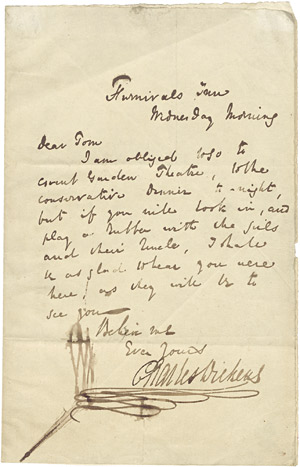 Furnivals Inn
Wednesday Morning
Dear Tom
I am obliged to go to
Covent Garden Theatre, to the
conservative Dinner to-night,
but if you will look in, and
play a Rubber with the girls
and their Uncle, I shall
be as glad to hear you were
here, as they will be to
see you
Believe me
Ever Yours
Charles Dickens